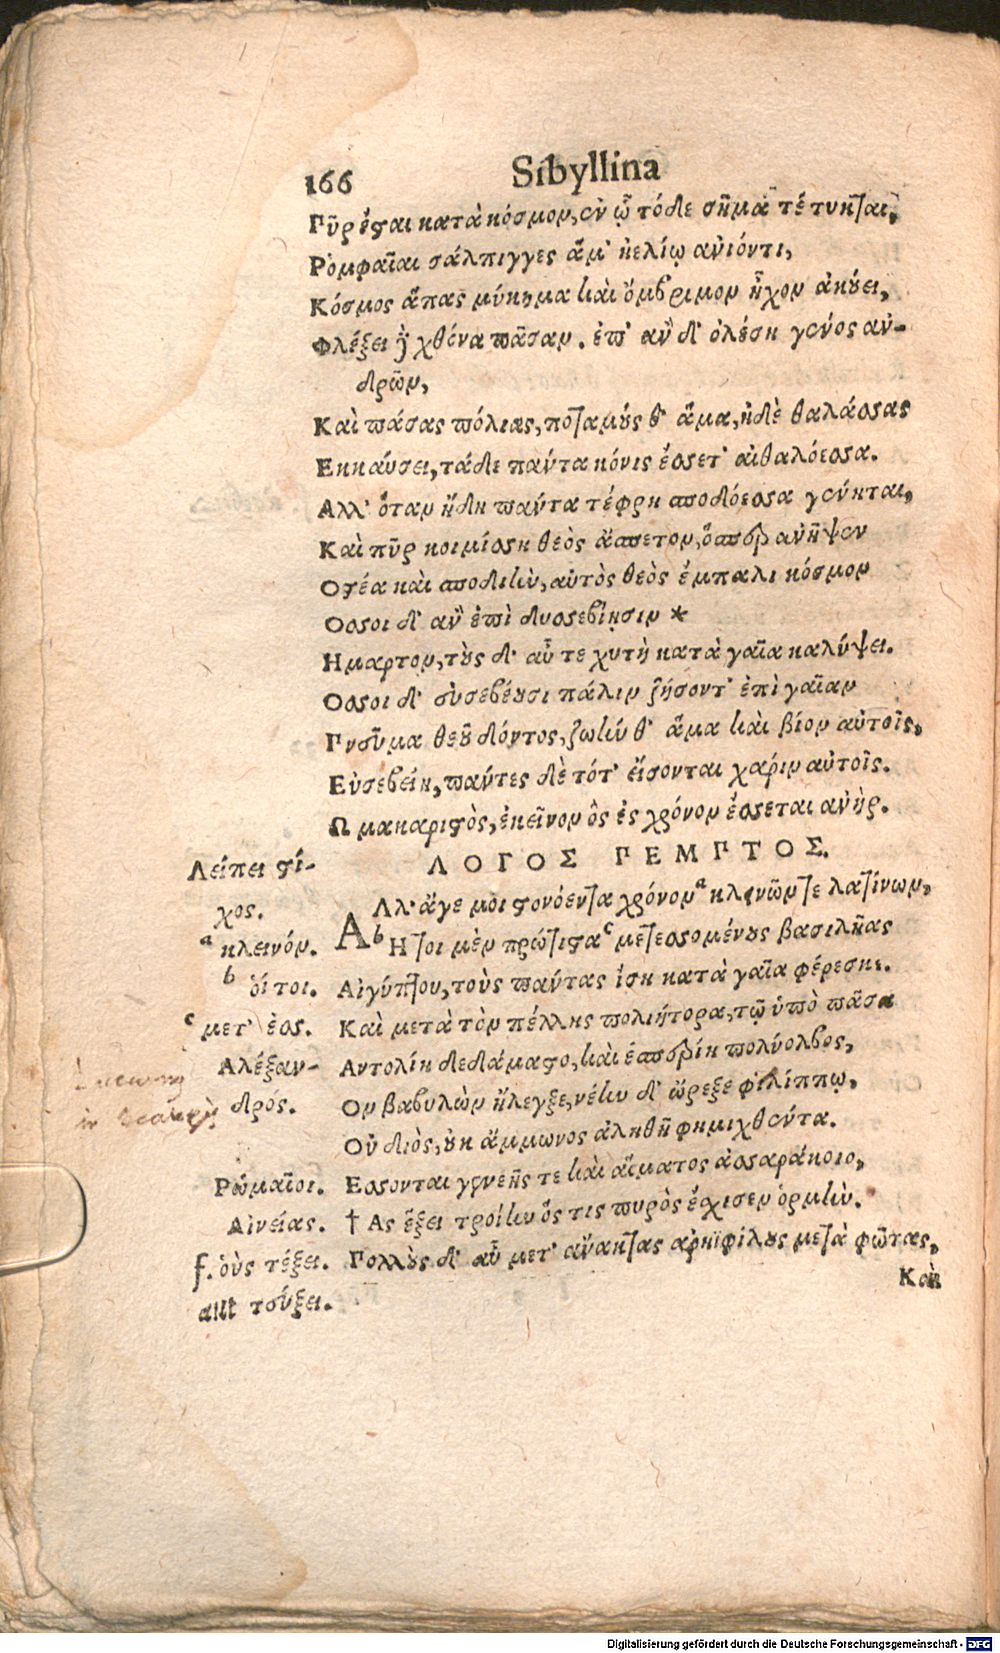 166 Sibyllina
Πῦρ ἔσται κατὰ κόσμον, ἐν ᾧ τόδε σῆμα τέτυκται,
Ρ̓ομφαῖαι σάλπιγγες ἅμ' ἠελίῳ ἀνιόντι,
Κόσμος ἅπας μύκημα καὶ ὄμβριμον ἦχον ἀκούει,
Φλέξει δὲ χθόνα πᾶσαν. ἐπ' ἂν δ' ὀλέσῃ γένος ἀν-
δρῶν,
Καὶ πάσας πόλιας, ποταμούς θ' ἅμα, ἠδὲ θαλάσσας
Εκκαύσει, τάδε πάντα κόνις ἔσσετ' αἰθαλόεσσα.
Αλλ' ὅταν ἤδη πάντα τέφρη σποδόεσσα γένηται,
Καὶ πῦρ κοιμίσῃ θεὸς ἄσπετον, ὅσπερ ἀνῆψεν
Οστέα καὶ σποδιὴν, αὐτὸς θεὸς ἔμπαλι κόσμον
Οσσοι δ' ἂν ἐπὶ δυσσεβίῃσιν *
Ημαρτον, τοὺς δ' αὖ τε χυτὴ κατὰ γαῖα καλύψει.
Οσσοι δ' εὐσεβέουσι πάλιν ζήσοντ' ἐπὶ γαῖαν
Πνεῦμα θεοῦ δόντος, ζωήν θ' ἅμα καὶ βίον αὐτοῖς,
Εὐσεβείη, πάντες δὲ τότ' εἴσονται χάριν αὐτοῖς.
Ω μακαριστὸς, ἐκεῖνον ὃς ἐς χρόνον ἔσσεται ἀνήρ.
ΛΟΓΟΣ ΠΕΜΠΤΟΣ.
Λείπει στί-
χος.
Αλλ' ἄγε μοι στονόεντα χρόνον ᵃ κλεινῶν τε λατίνων,
ᵃ κλεινόν.
ᵇ Ητοι μὲν πρώτιστα ᶜ μετεσσομένους βασιλῆας
ᵇ ὅι τοι.
Αἰγύπτου, τοὺς πάντας ἴση κατὰ γαῖα φέρεσκε.
ᶜ μετ' ἐσσ.
Καὶ μετὰ τὸν πέλλης πολιήτορα, τῷ ὑπὸ πᾶσα
Αλέξαν-
δρός.
Αντολίη δεδάμαστο, καὶ ἑσπερίη πολύολβος,
Ον βαβυλὼν ἤλεγξε, νέκυν δ' ὤρεξε φιλίππῳ,
Οὐ διὸς, οὐκ ἄμμωνος ἀληθῆ φημιχθέντα.
Ρωμαῖοι.
Εσσονται γενεῆς τε καὶ αἵματος ἀσσαράκοιο,
Αἰνείας.
† Ας ἕξει τροίην ὅς τις πυρὸς ἔσχισεν ὁρμήν.
f. ὁὺς τέξει.
Πολλοὺς δ' αὖ μετ' ἄνακτας ἀρηϊφίλους μετὰ φῶτας,
aut τεύξει.
Καὶ
Digitalisierung gefördert durch die Deutsche Forschungsgemeinschaft - DFG